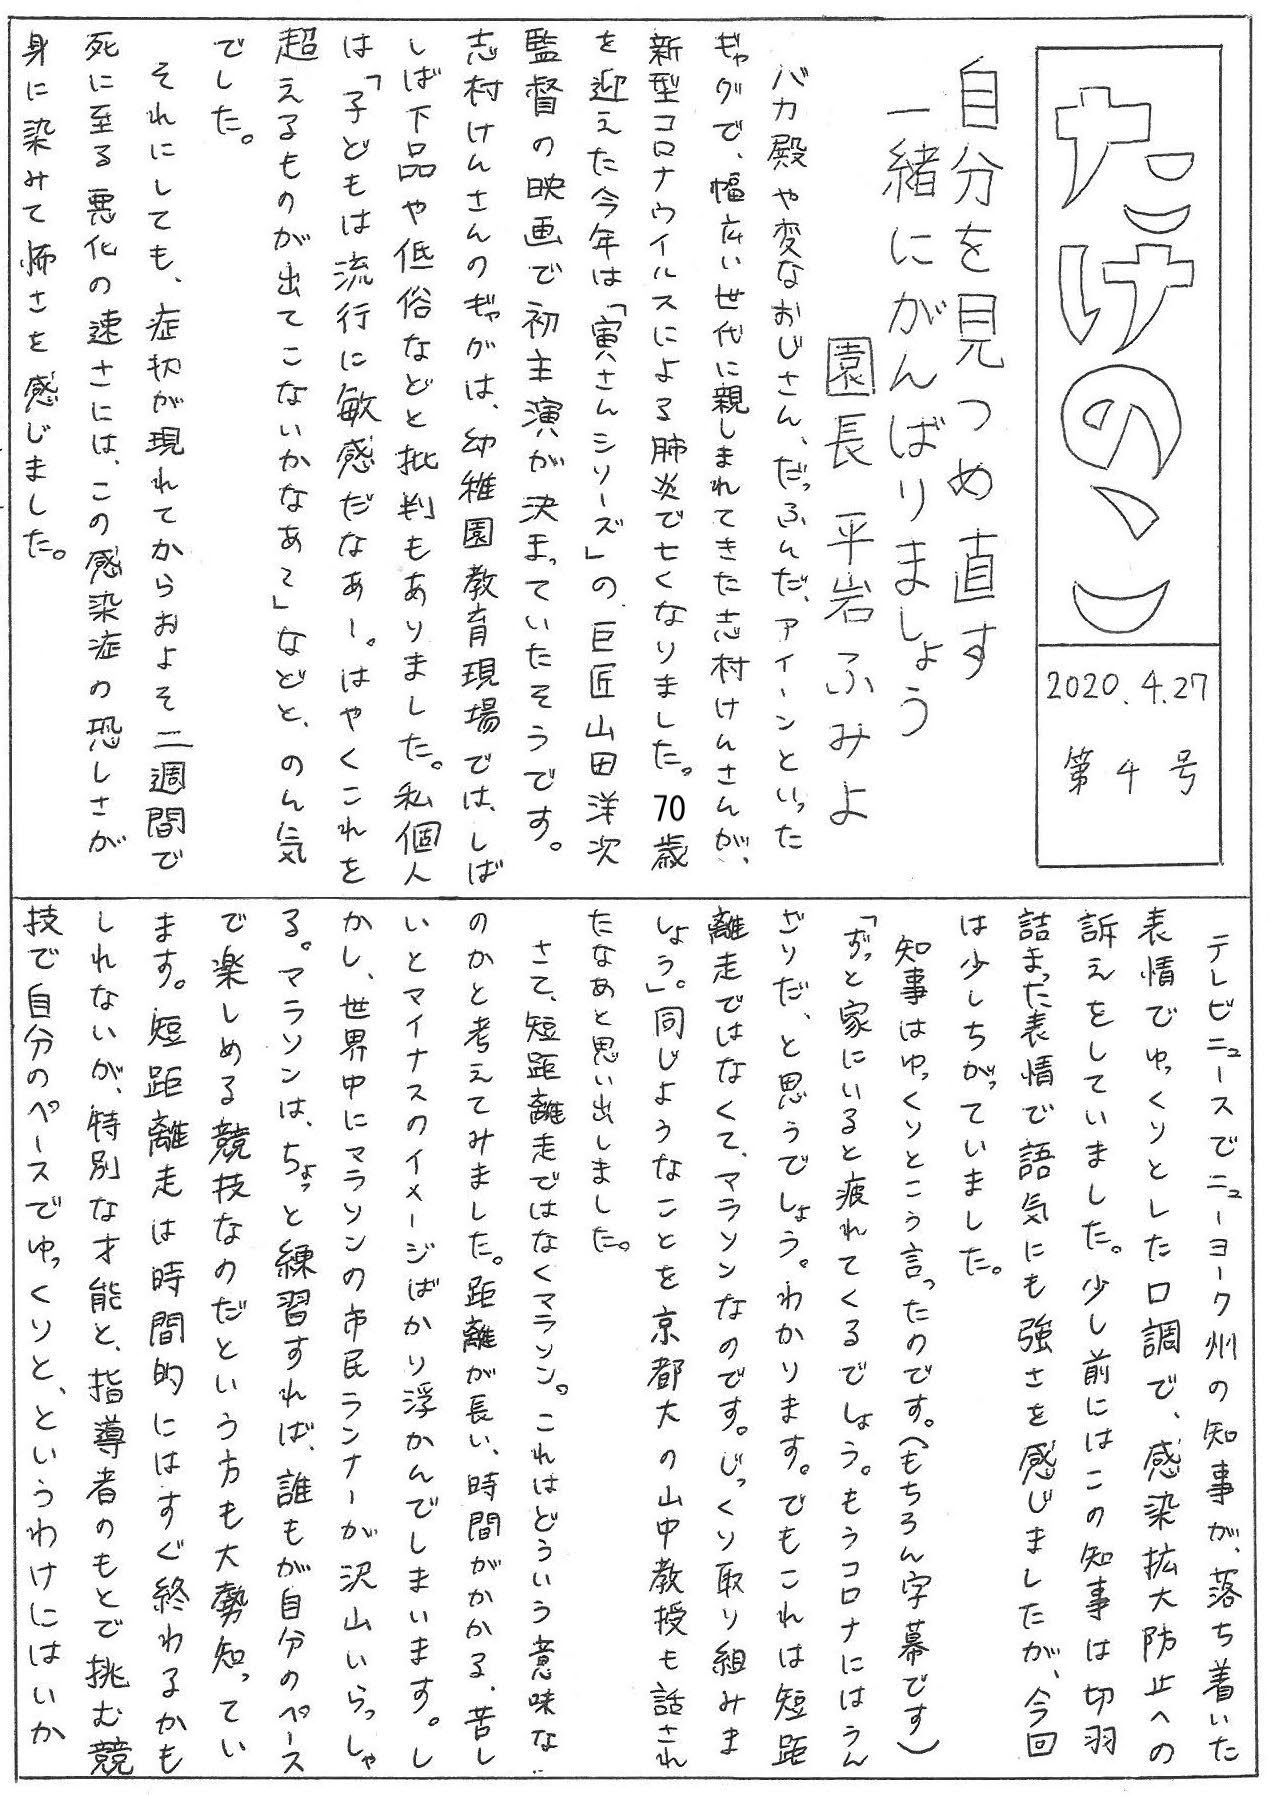 たけのこ
2020.4.27
第4号
自分を見つめ直す
一緒にがんばりましょう
園長 平岩ふみよ
バカ殿や変なおじさん、だっふんだ、アイーンといった
ギャグで、幅広い世代に親しまれてきた志村けんさんが、
新型コロナウイルスによる肺炎で亡くなりました。70歳
を迎えた今年は「寅さんシリーズ」の巨匠山田洋次
監督の映画で初主演が決まっていたそうです。
志村けんさんのギャグは、幼稚園教育現場では、しば
しば下品や低俗などと批判もありました。私個人
は「子どもは流行に敏感だなあー。はやくこれを
超えるものが出てこないかなあ~」などと、のん気
でした。
それにしても、症状が現れてからおよそ二週間で
死に至る悪化の速さには、この感染症の恐しさが
身に染みて怖さを感じました。
テレビニュースでニューヨーク州の知事が、落ち着いた
表情でゆっくりとした口調で、感染拡大防止への
訴えをしていました。少し前にはこの知事は切羽
詰まった表情で語気にも強さを感じましたが、今回
は少しちがっていました。
知事はゆっくりとこう言ったのです。(もちろん字幕です)
「ずっと家にいると疲れてくるでしょう。もうコロナにはうん
ざりだ、と思うでしょう。わかります。でもこれは短距
離走ではなくて、マラソンなのです。じっくり取り組みま
しょう」。同じようなことを京都大の山中教授も話され
たなあと思い出しました。
さて、短距離走ではなくマラソン。これはどういう意味な
のかと考えてみました。距離が長い、時間がかかる、苦し
いとマイナスのイメージばかり浮かんでしまいます。し
かし、世界中にマラソンの市民ランナーが沢山いらっしゃ
る。マラソンは、ちょっと練習すれば、誰もが自分のペース
で楽しめる競技なのだという方も大勢知ってい
ます。短距離走は時間的にはすぐ終わるかも
しれないが、特別な才能と、指導者のもとで挑む競
技で自分のペースでゆっくりと、というわけにはいか